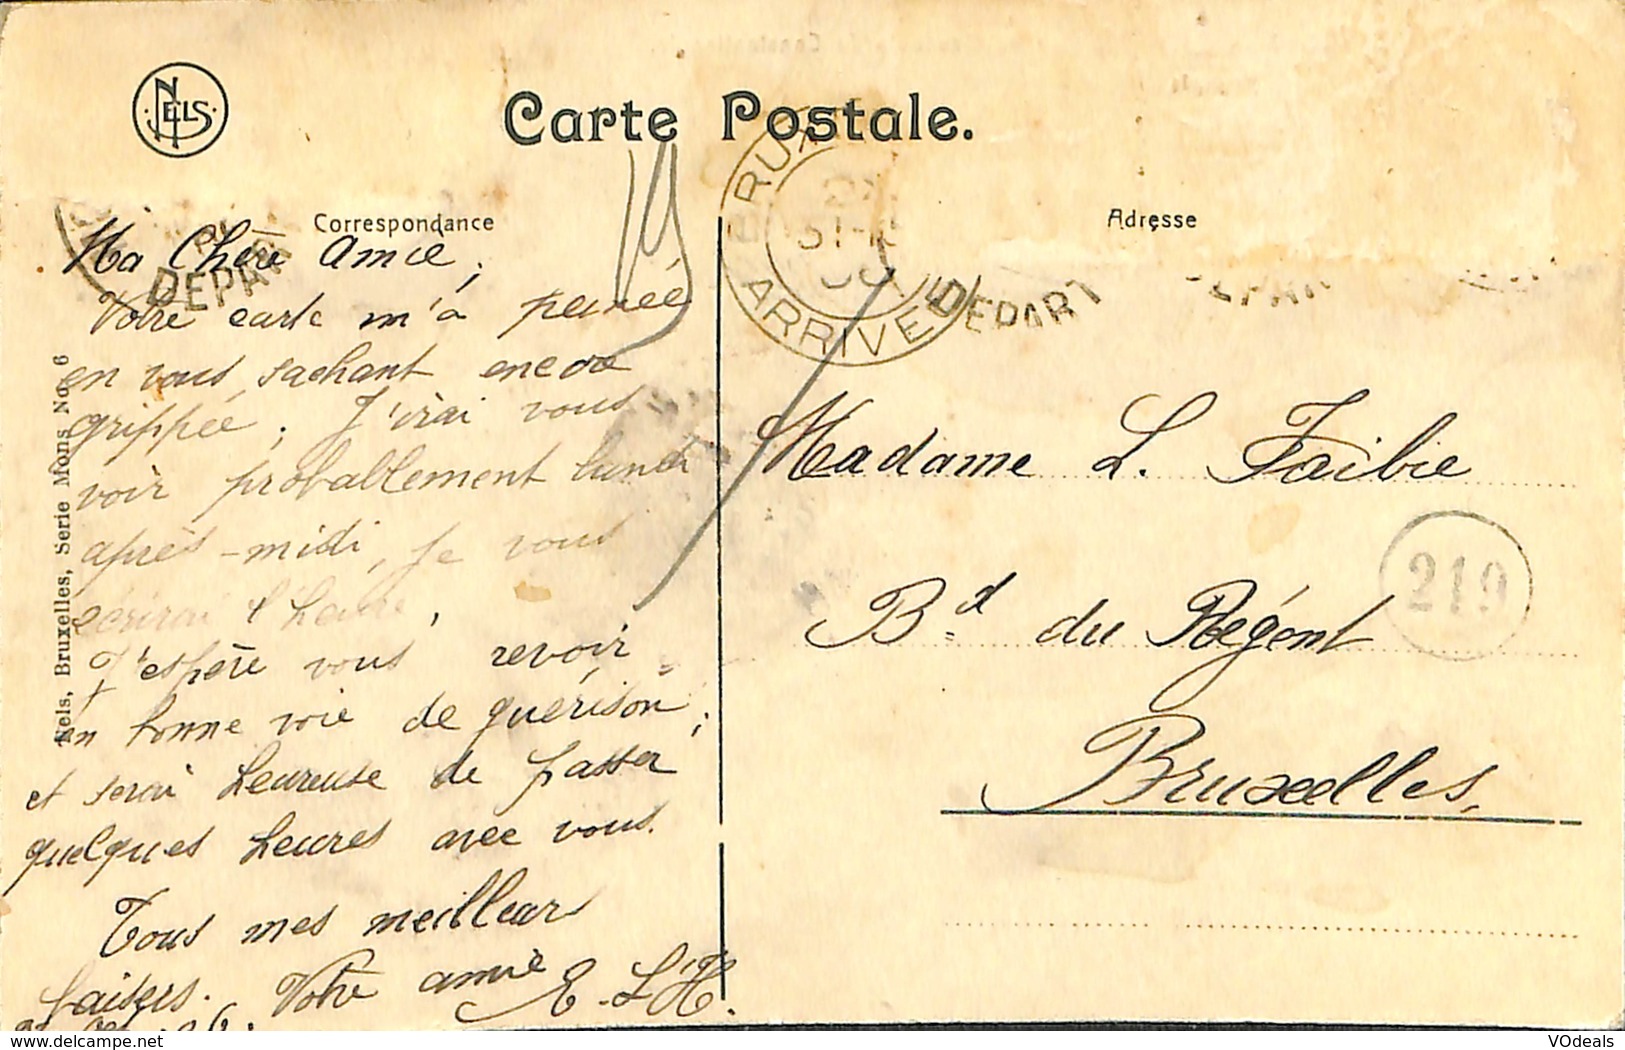 NELS
Carte Postale.
Correspondance
Adresse
DEPART
ARRIVEE
DEPART
Ma Chère Amie,
Votre carte m'a peinée
en vous sachant encore
grippée. J'irai vous
voir probablement lundi
après-midi, je vous
écrirai l'heure.
J'espère vous revoir
en bonne voie de guérison,
et serai heureuse de passer
quelques heures avec vous.
Tous mes meilleurs
baisers. Votre amie E. L'H.
Madame L. Faibie
Bd du Régent
Bruxelles.
219
Nels, Bruxelles, Serie Mons No. 6
VOdeals
© www.delcampe.net